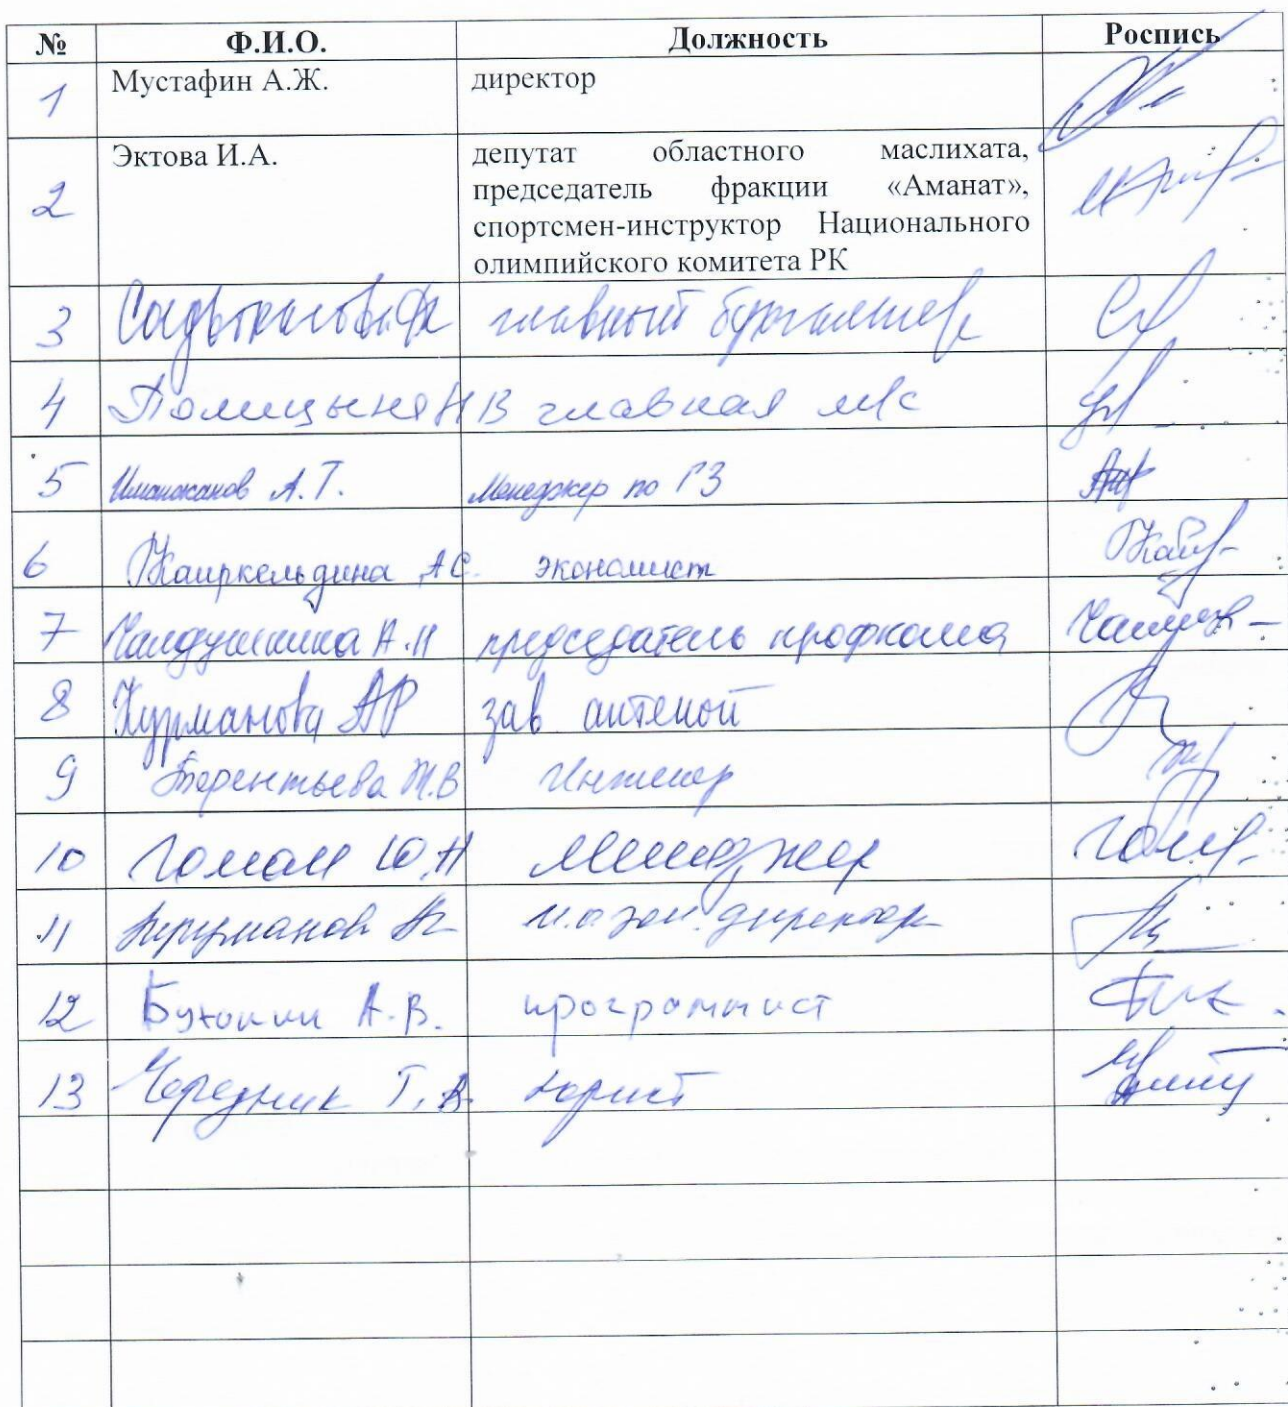 № Ф.И.О. Должность Роспись
1 Мустафин А.Ж. директор
2 Эктова И.А. депутат областного маслихата,
председатель фракции «Аманат»,
спортсмен-инструктор Национального
олимпийского комитета РК
3 главный бухгалтер
4 Полицына Н В главная м/с
5 Иманжанов А.Т. Менеджер по ГЗ
6 Жаиркельдина А С. экономист
7 А.Н председатель профкома
8 Курманова АР зав аптекой
9 Терентьева Т.В Инженер
10 Гоман Ю.Н Менеджер
11 и.о зам. директор
12 А.В. программист
13 Чередник Т.В. юрист